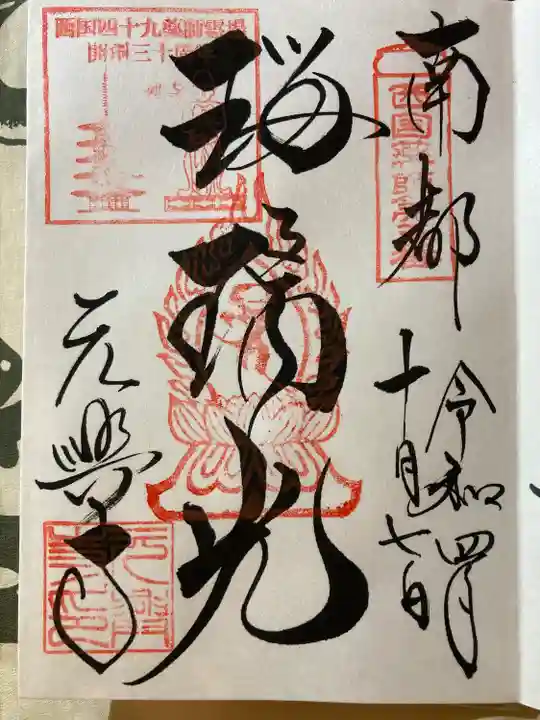 南都
令和四年
十月七日
瑠璃光
元興寺
西国薬師第五番
西国四十九薬師霊場